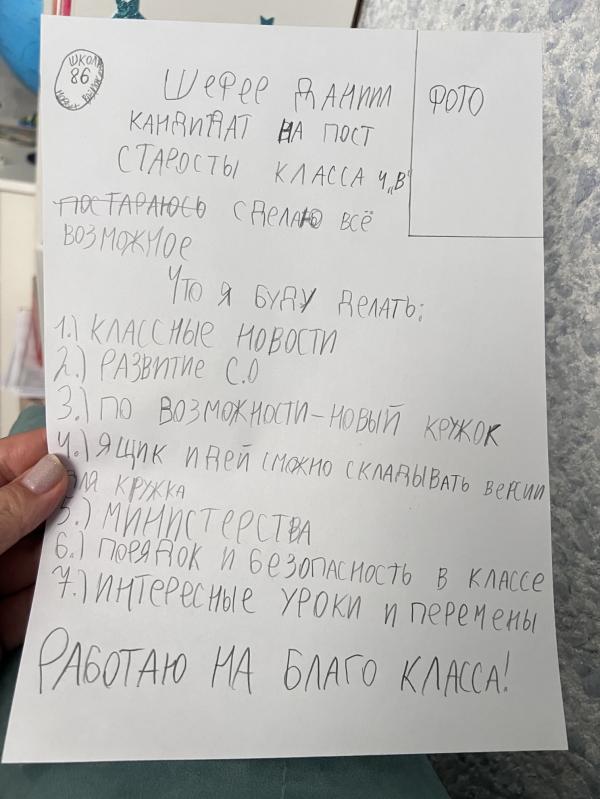 ШКОЛА
86
ШЕФЕР ДАНИИЛ
ФОТО
КАНДИДАТ НА ПОСТ
СТАРОСТЫ КЛАССА 4„В"
ПОСТАРАЮСЬ СДЕЛАЮ ВСЁ
ВОЗМОЖНОЕ
ЧТО Я БУДУ ДЕЛАТЬ:
1.) КЛАССНЫЕ НОВОСТИ
2.) РАЗВИТИЕ С.О
3.) ПО ВОЗМОЖНОСТИ – НОВЫЙ КРУЖОК
4.) ЯЩИК ИДЕЙ (МОЖНО СКЛАДЫВАТЬ ВЕРСИИ
ДЛЯ КРУЖКА
5.) МИНИСТЕРСТВА
6.) ПОРЯДОК И БЕЗОПАСНОСТЬ В КЛАССЕ
7.) ИНТЕРЕСНЫЕ УРОКИ И ПЕРЕМЕНЫ
РАБОТАЮ НА БЛАГО КЛАССА!